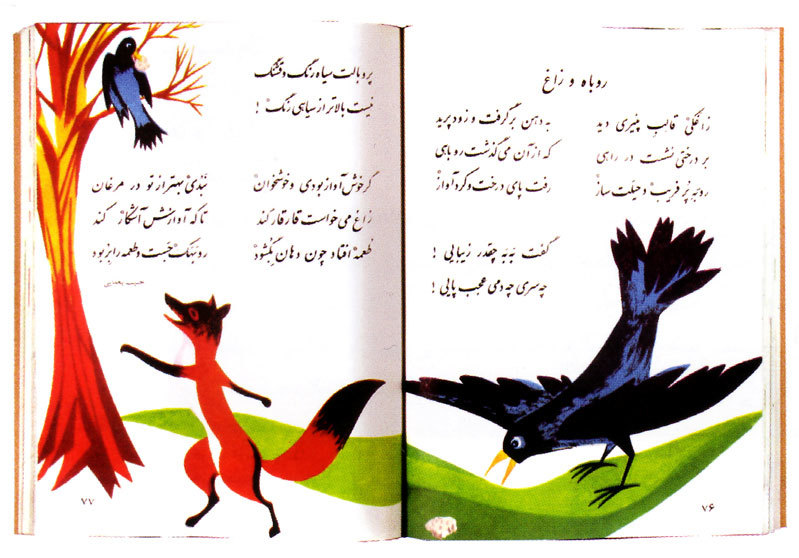 روباه و زاغ
زاغکی قالب پنیری دید به دهن بر گرفت و زود پرید
بر درختی نشست در راهی که از آن می گذشت روباهی
روبه پُر فریب و حیلت ساز رفت پای درخت و کرد آواز
گفت به به چقدر زیبایی !
چه سری چه دمی عجب پایی !
۷۶
پر و بالت سیاه رنگ و قشنگ
نیست بالاتر از سیاهی رنگ !
گر خوش آواز بودی و خوشخوان نَبُدی بهتر از تو در مرغان
زاغ می خواست قار قار کند تا که آوازش آشکار کند
طعمه افتاد چون دهان بگشود روبهک جست و طعمه را بربود
حبیب یغمایی
۷۷